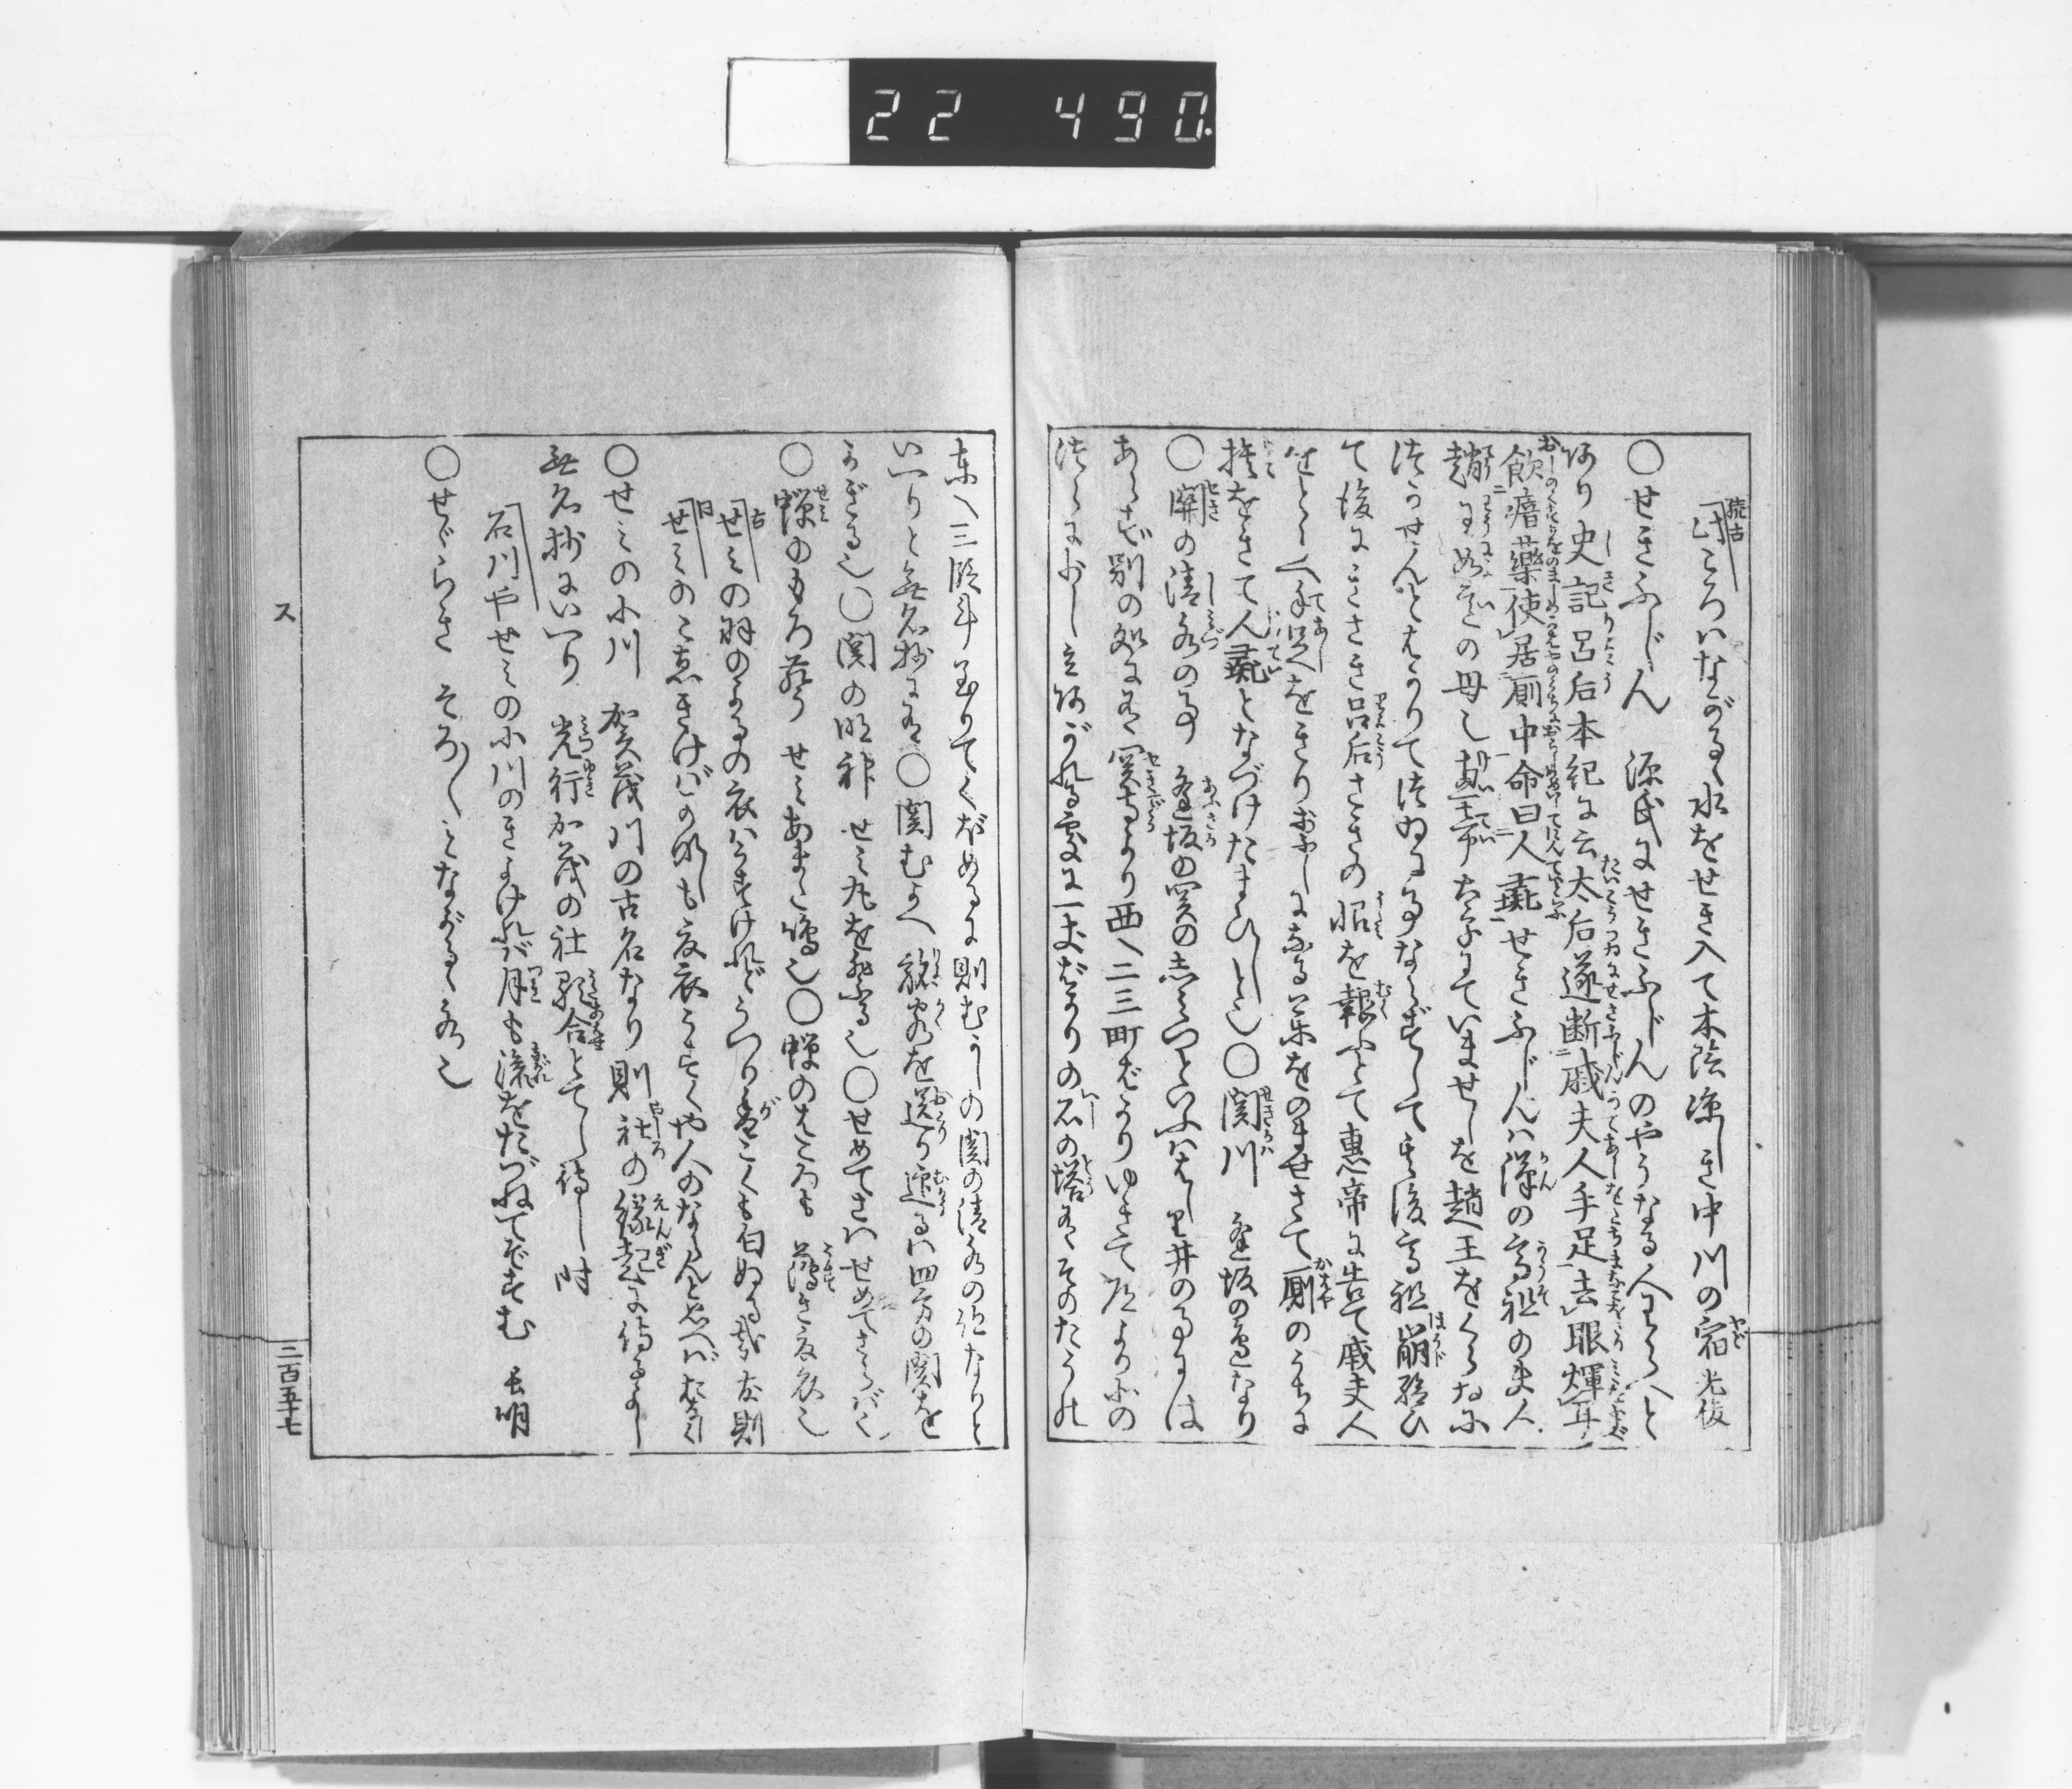 22 490.
続古
行ころいながるゝ水をせき入て木陰涼しき中川の宿 光俊
〇せきふじん 源氏にせきふじんのやうなる人わらへと
あり史記呂后本紀に云太后遂断戚夫人手足去眼煇耳
飲瘖薬使居厠中命曰人彘せきふじんハ漢の高祖の夫人
趙王如意の母也恵帝太子にていませしを趙王をくらゐに
つけんとはかりてつゐに事ならずして其後高祖崩給ひ
て後にきさき呂后さきの恨を報ふとて恵帝に告て戚夫人
をとらへ手足をきりおふしになる薬をのませさせて厠のうちに
捨をきて人彘となづけたまひしと也〇関川 逢坂の辺なり
〇関の清水の事 逢坂の関のしみつといふハはしり井の事には
あらず別の処に有 関寺より西へ二三町ばかりゆきて道より北の
つらに少し立あがれる処に一丈ばかりの石の塔有 そのたうの
東へ三段斗 下りてくぼめるに則むかしの関の清水の跡なりと
いへりと無名抄に有〇関むかへ 旅客を送り迎るハ四方の関を
かぎる也〇関の明神 せミ丸を祭る也〇せめてさハせめてさらばく
〇蝉のもろ声 せミあまた鳴也〇蝉のはころも 薄き夏衣也
古
せミの羽のよるの衣ハうすけれどうつり香こくも匂ぬる哉 友則
同
せミのこゑきけばかなしも夏衣うすくや人のならんと思へば 友則
〇せミの小川 賀茂川の古名なり 則社の縁起に侍るよし
無名抄にいへり 光行加茂の社歌合とてし侍し時
石川やせミの小川のきよければ月も流をたづねてぞすむ 長明
〇せゞらき そろ〳〵とながるゝ水也
ス
二百五十七